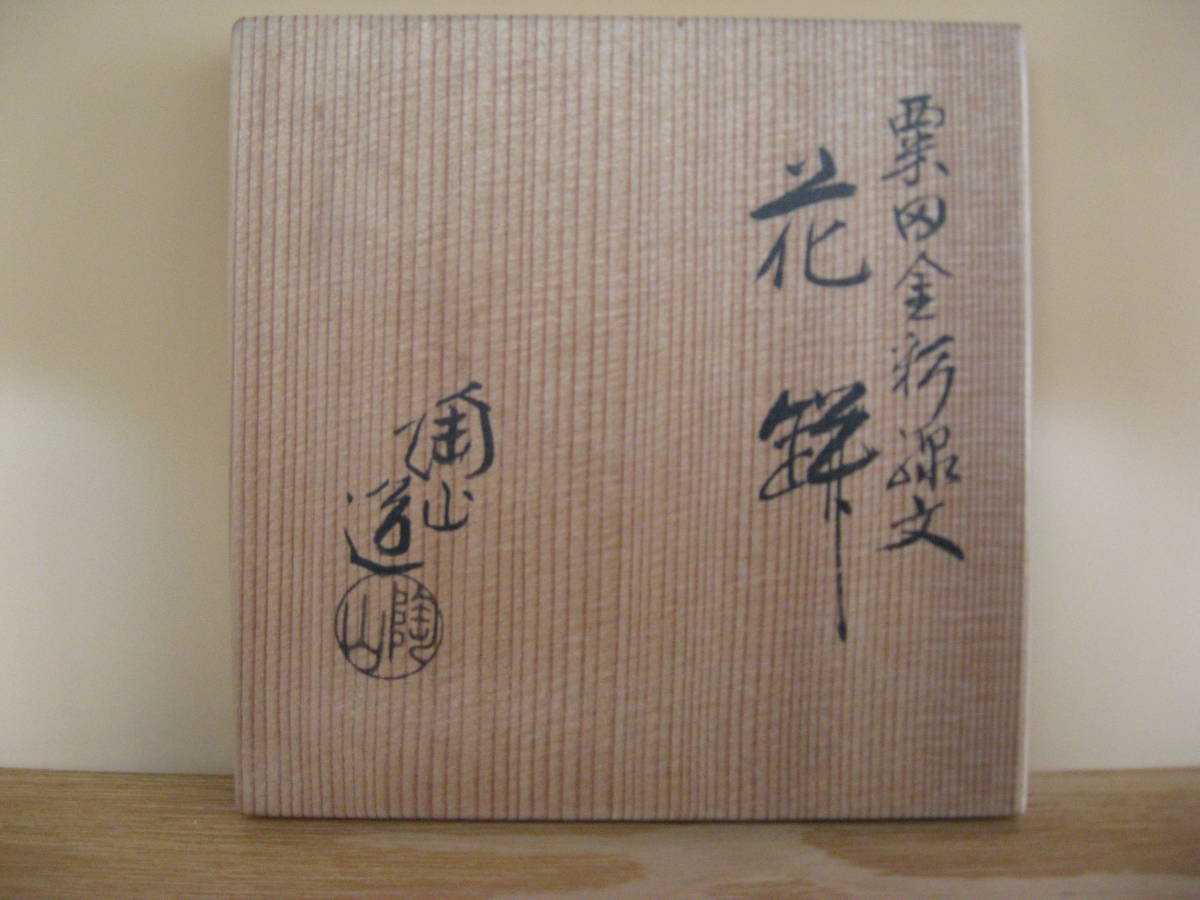 粟田金彩線文
花鉢
陶山造
陶山